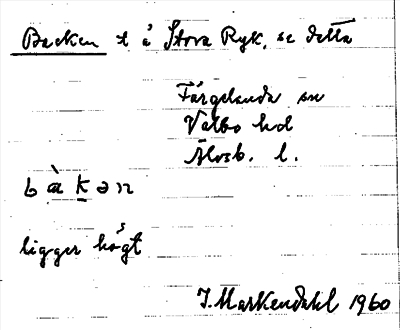 Backen t å Stora Ryk, se detta
Färgelanda sn
Valbo hd
Älvsb. l.
bàkən
ligger högt
J. Markendahl 1960